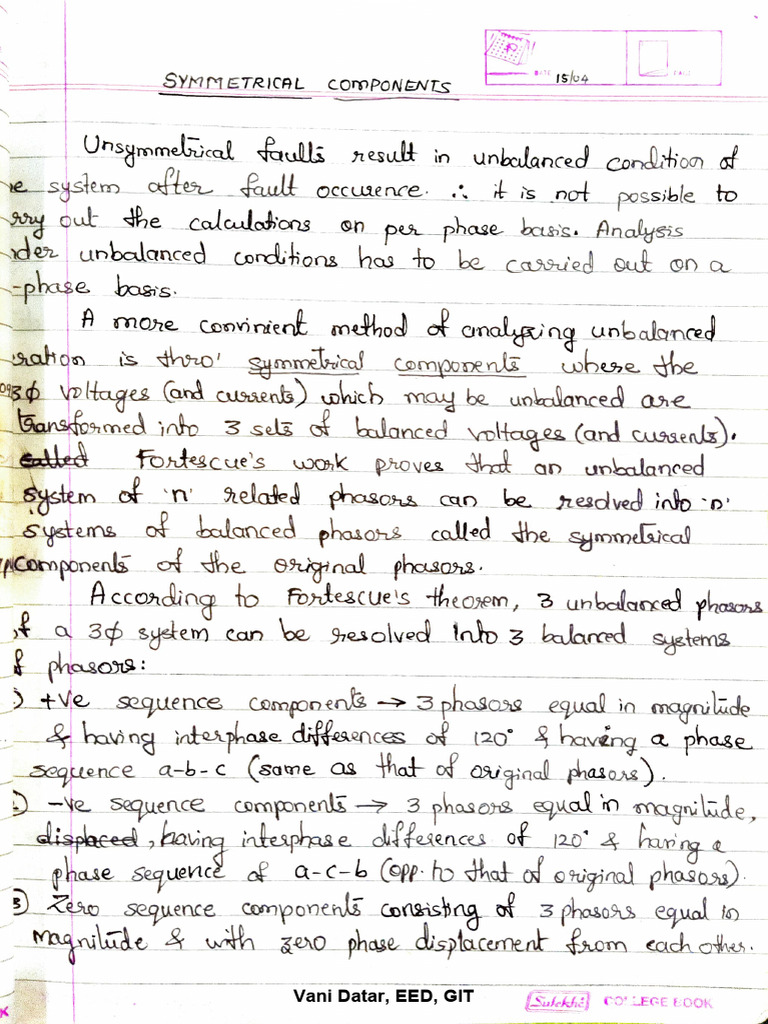 DATE 15/04
SYMMETRICAL COMPONENTS
Unsymmetrical faults result in unbalanced condition of
e system after fault occurence. ∴ it is not possible to
rry out the calculations on per phase basis. Analysis
der unbalanced conditions has to be carried out on a
-phase basis.
A more convinient method of analyzing unbalanced
ration is thro' symmetrical components where the
3ϕ voltages (and currents) which may be unbalanced are
transformed into 3 sets of balanced voltages (and currents).
called Fortescue's work proves that an unbalanced
system of 'n' related phasors can be resolved into 'n'
systems of balanced phasors called the symmetrical
components of the original phasors.
According to Fortescue's theorem, 3 unbalanced phasors
of a 3ϕ system can be resolved into 3 balanced systems
of phasors:
) +ve sequence components → 3 phasors equal in magnitude
& having interphase differences of 120° & having a phase
sequence a-b-c (same as that of original phasors).
2) -ve sequence components → 3 phasors equal in magnitude,
displaced, having interphase differences of 120° & having a
phase sequence of a-c-b (opp. to that of original phasors).
3) Zero sequence components consisting of 3 phasors equal in
magnitude & with zero phase displacement from each other.
Vani Datar, EED, GIT
Sulekha COLLEGE BOOK